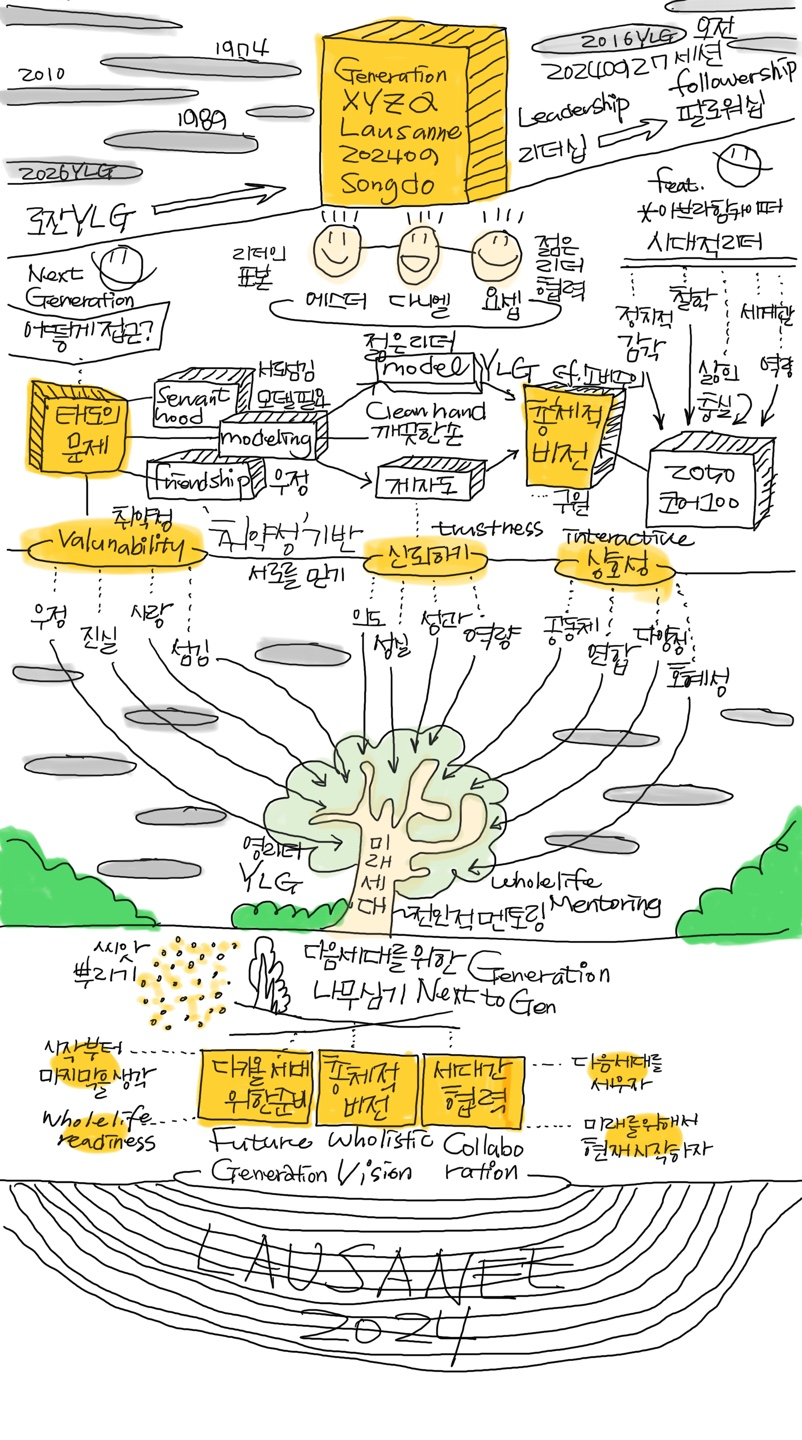 1974
2010
1989
2026YLG
로잔YLG
Generation
XYZ@
Lausanne
202409
Songdo
2016YLG 오전
20240927세션
Leadership
리더십
followership
팔로워십
feat.
시대적리더
Next
Generation
어떻게접근?
리더의
표본
에스더
다니엘
요셉
젊은
리더
협력
정치적
감각
철학
삶의
충실
세계관
역량
태도의
문제
Servant
hood
서번섬김
모델필요
modeling
friendship
우정
젊은리더
model
YLG
Clean hand
깨끗한손
제자도
총체적
비전
구원
2050
코어100
취약점
Valunability
"취약성"기반
서로를 믿기
trustness
신뢰하기
interactive
상호성
우정
진실
사랑
섬김
의도
성실
성과
역량
공동체
연합
다양성
호혜성
영리더
YLG
미
래
세
대
wholelife
Mentoring
전인적멘토링
씨앗
뿌리기
다음세대를위한 Generation
나무심기 Next to Gen
시작부터
마지막을생각
wholelife
readiness
다가올세대
위한준비
총체적
비전
세대간
협력
다음세대를
세우자
미래를위해서
현재시작하자
Future
Generation
wholistic
Vision
Collabo
ration
LAUSANEE
2024